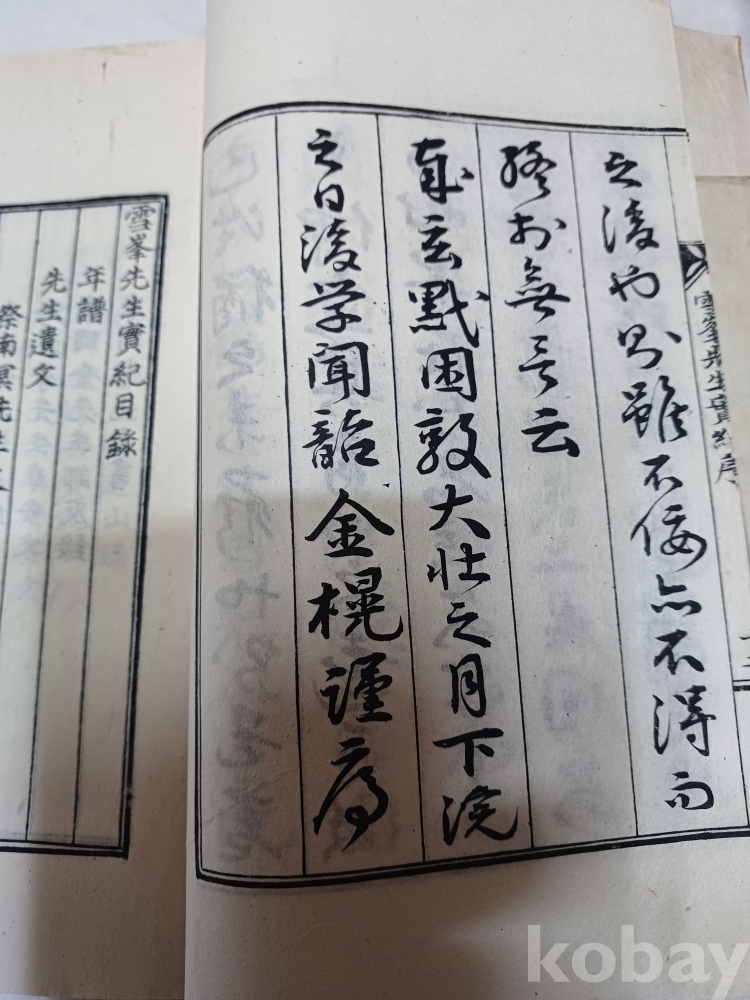 雪峯先生實紀序
之後也則雖不佞亦不得而
終於無言云
歲玄黓困敦大壯之月下浣
之日後学聞韶金榥謹序
雪峯先生實紀目錄
年譜
先生遺文
祭南冥先生
kobay